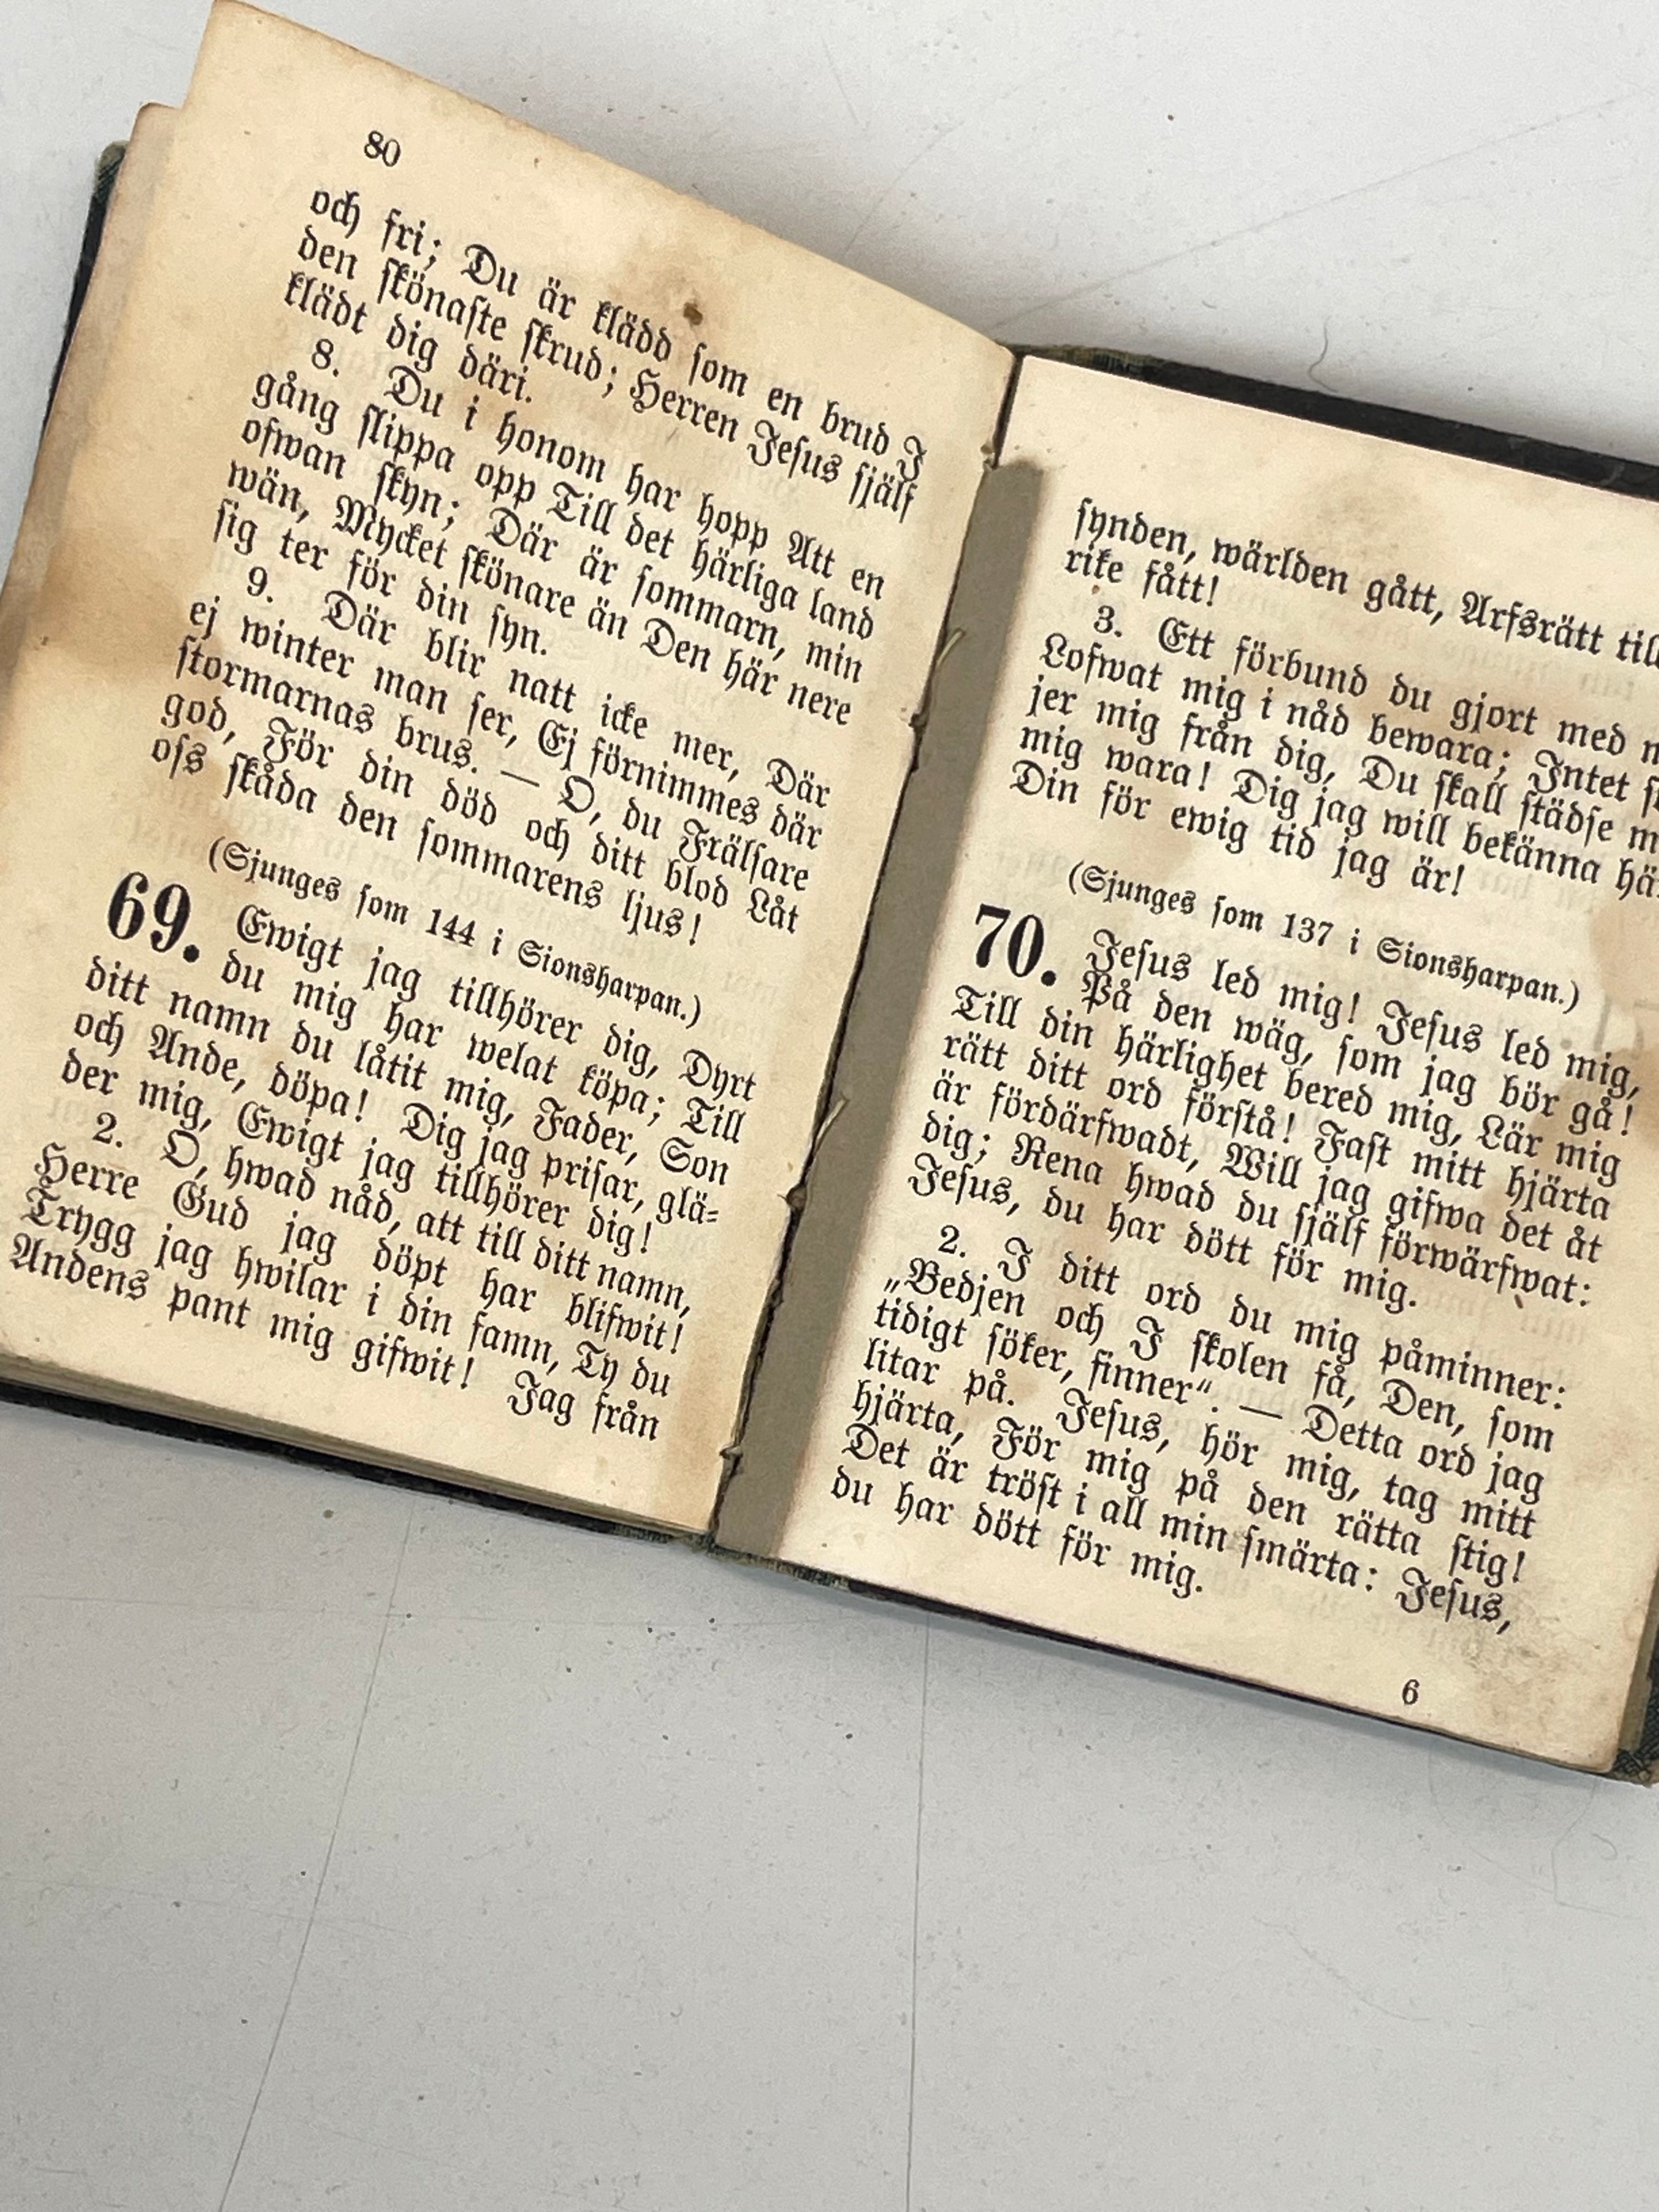 80
och fri; Du är klädd som en brud I
den skönaste skrud; Herren Jesus själf
klädt dig däri.
8. Du i honom har hopp Att en
gång slippa opp Till det härliga land
ofwan skyn; Där är sommarn, min
wän, Mycket skönare än Den här nere
sig ter för din syn.
9. Där blir natt icke mer, Där
ej winter man ser, Ej förnimmes där
stormarnas brus. — O, du Frälsare
god, För din död och ditt blod Låt
oss skåda den sommarens ljus!
(Sjunges som 144 i Sionsharpan.)
69. Ewigt jag tillhörer dig, Dyrt
du mig har welat köpa; Till
ditt namn du låtit mig, Fader, Son
och Ande, döpa! Dig jag prisar, glä-
der mig, Ewigt jag tillhörer dig!
2. O, hwad nåd, att till ditt namn,
Herre Gud jag döpt har blifwit!
Trygg jag hwilar i din famn, Ty du
Andens pant mig gifwit! Jag från
synden, wärlden gått, Arfsrätt
rike fått!
3. Ett förbund du gjort med
Lofwat mig i nåd bewara; Intet
jer mig från dig, Du skall städse
mig wara! Dig jag will bekänna
Din för ewig tid jag är!
(Sjunges som 137 i Sionsharpan.)
70. Jesus led mig! Jesus led mig,
På den wäg, som jag bör gå!
Till din härlighet bered mig, Lär mig
rätt ditt ord förstå! Fast mitt hjärta
är fördärfwadt, Will jag gifwa det åt
dig; Rena hwad du själf förwärfwat:
Jesus, du har dött för mig.
2. I ditt ord du mig påminner:
„Bedjen och I skolen få, Den, som
tidigt söker, finner“. — Detta ord jag
litar på. Jesus, hör mig, tag mitt
hjärta, För mig på den rätta stig!
Det är tröst i all min smärta: Jesus,
du har dött för mig.
6